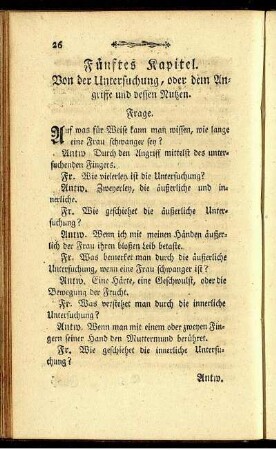 26
Fünftes Kapitel.
Von der Untersuchung, oder dem An-
griffe und dessen Nutzen.
Frage.
Auf was für Weise kann man wissen, wie lange
eine Frau schwanger sey?
Antw. Durch den Angriff mittelst des unter-
suchenden Fingers.
Fr. Wie vielerley ist die Untersuchung?
Antw. Zweyerley, die äußerliche und in-
nerliche.
Fr. Wie geschiehet die äußerliche Unter-
suchung?
Antw. Wenn ich mit meinen Händen äußer-
lich der Frau ihren bloßen Leib betaste.
Fr. Was bemerket man durch die äußerliche
Untersuchung, wenn eine Frau schwanger ist?
Antw. Eine Härte, eine Geschwulst, oder die
Bewegung der Frucht.
Fr. Was verstehet man durch die innerliche
Untersuchung?
Antw. Wenn man mit einem oder zweyen Fin-
gern seiner Hand den Muttermund berühret.
Fr. Wie geschiehet die innerliche Untersu-
chung?
Antw.